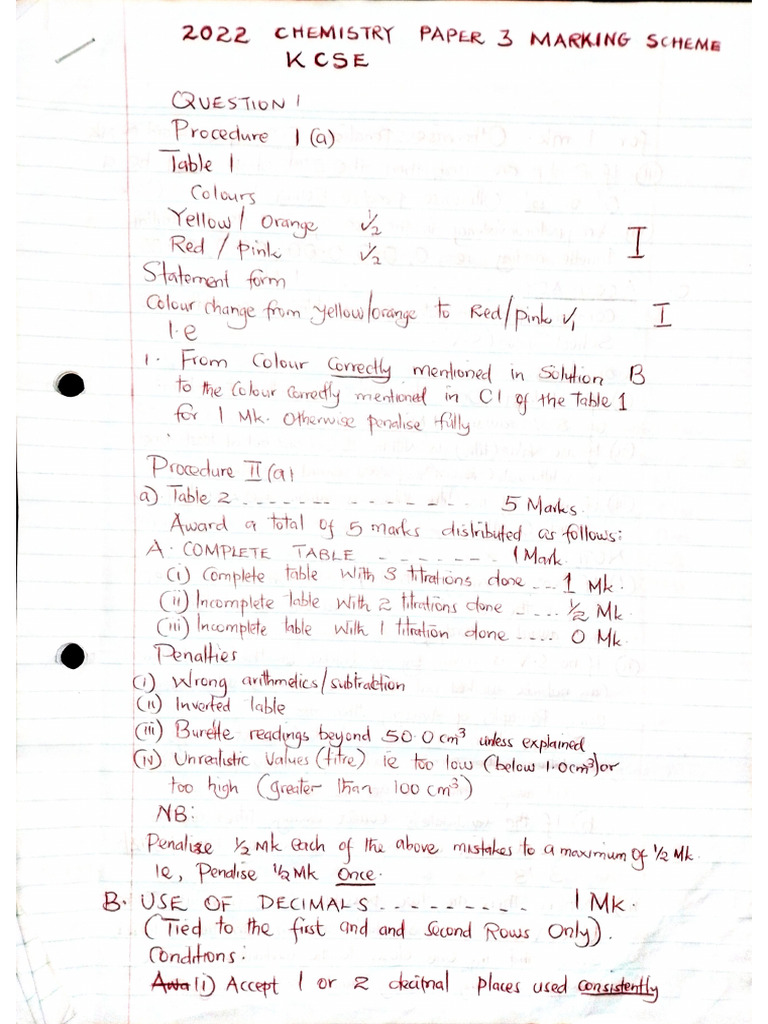 2022 CHEMISTRY PAPER 3 MARKING SCHEME
KCSE
QUESTION 1
Procedure 1 (a)
Table 1
Colours
Yellow / Orange √½
Red / pink √½ I
Statement form
Colour change from yellow/orange to Red/pink √1 I
I.e
1. From Colour Correctly mentioned in Solution B
to the Colour Correctly mentioned in C1 of the Table 1
for 1 Mk. Otherwise penalise fully
Procedure II (a)
a) Table 2 ------- ------- 5 Marks.
Award a total of 5 marks distributed as follows:
A. COMPLETE TABLE ------- 1 Mark.
(i) Complete table With 3 titrations done -- 1 Mk.
(ii) Incomplete Table With 2 titrations done ---- ½ Mk.
(iii) Incomplete table With 1 titration done ---- 0 Mk.
Penalties
(i) Wrong arithmetics/subtraction
(ii) Inverted table
(iii) Burette readings beyond 50.0 cm³ unless explained
(iv) Unrealistic Values (titre) ie too low (below 1.0cm³) or
too high (Greater than 100 cm³)
NB:
Penalize ½ Mk each of the above mistakes to a maximum of ½ Mk.
Ie, Penalise ½ Mk Once.
B. USE OF DECIMALS --------- 1 Mk.
(Tied to the first and and Second Rows Only).
Conditions:
Awa (i) Accept 1 or 2 decimal places used consistently